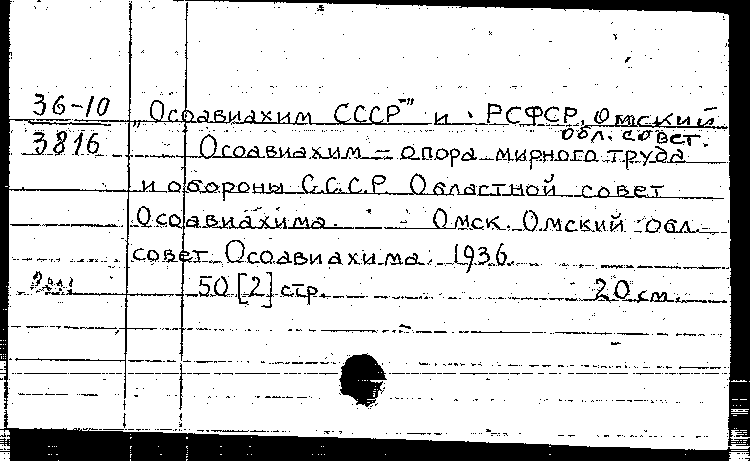 36-10
3816
„Осоавиахим СССР" и РСФСР, Омский
обл. совет.
Осоавиахим – опора мирного труда
и обороны С.С.С.Р. Областной совет
Осоавиахима. - Омск. Омский обл.
совет Осоавиахима. 1936.
50 [2] стр. 20 см.